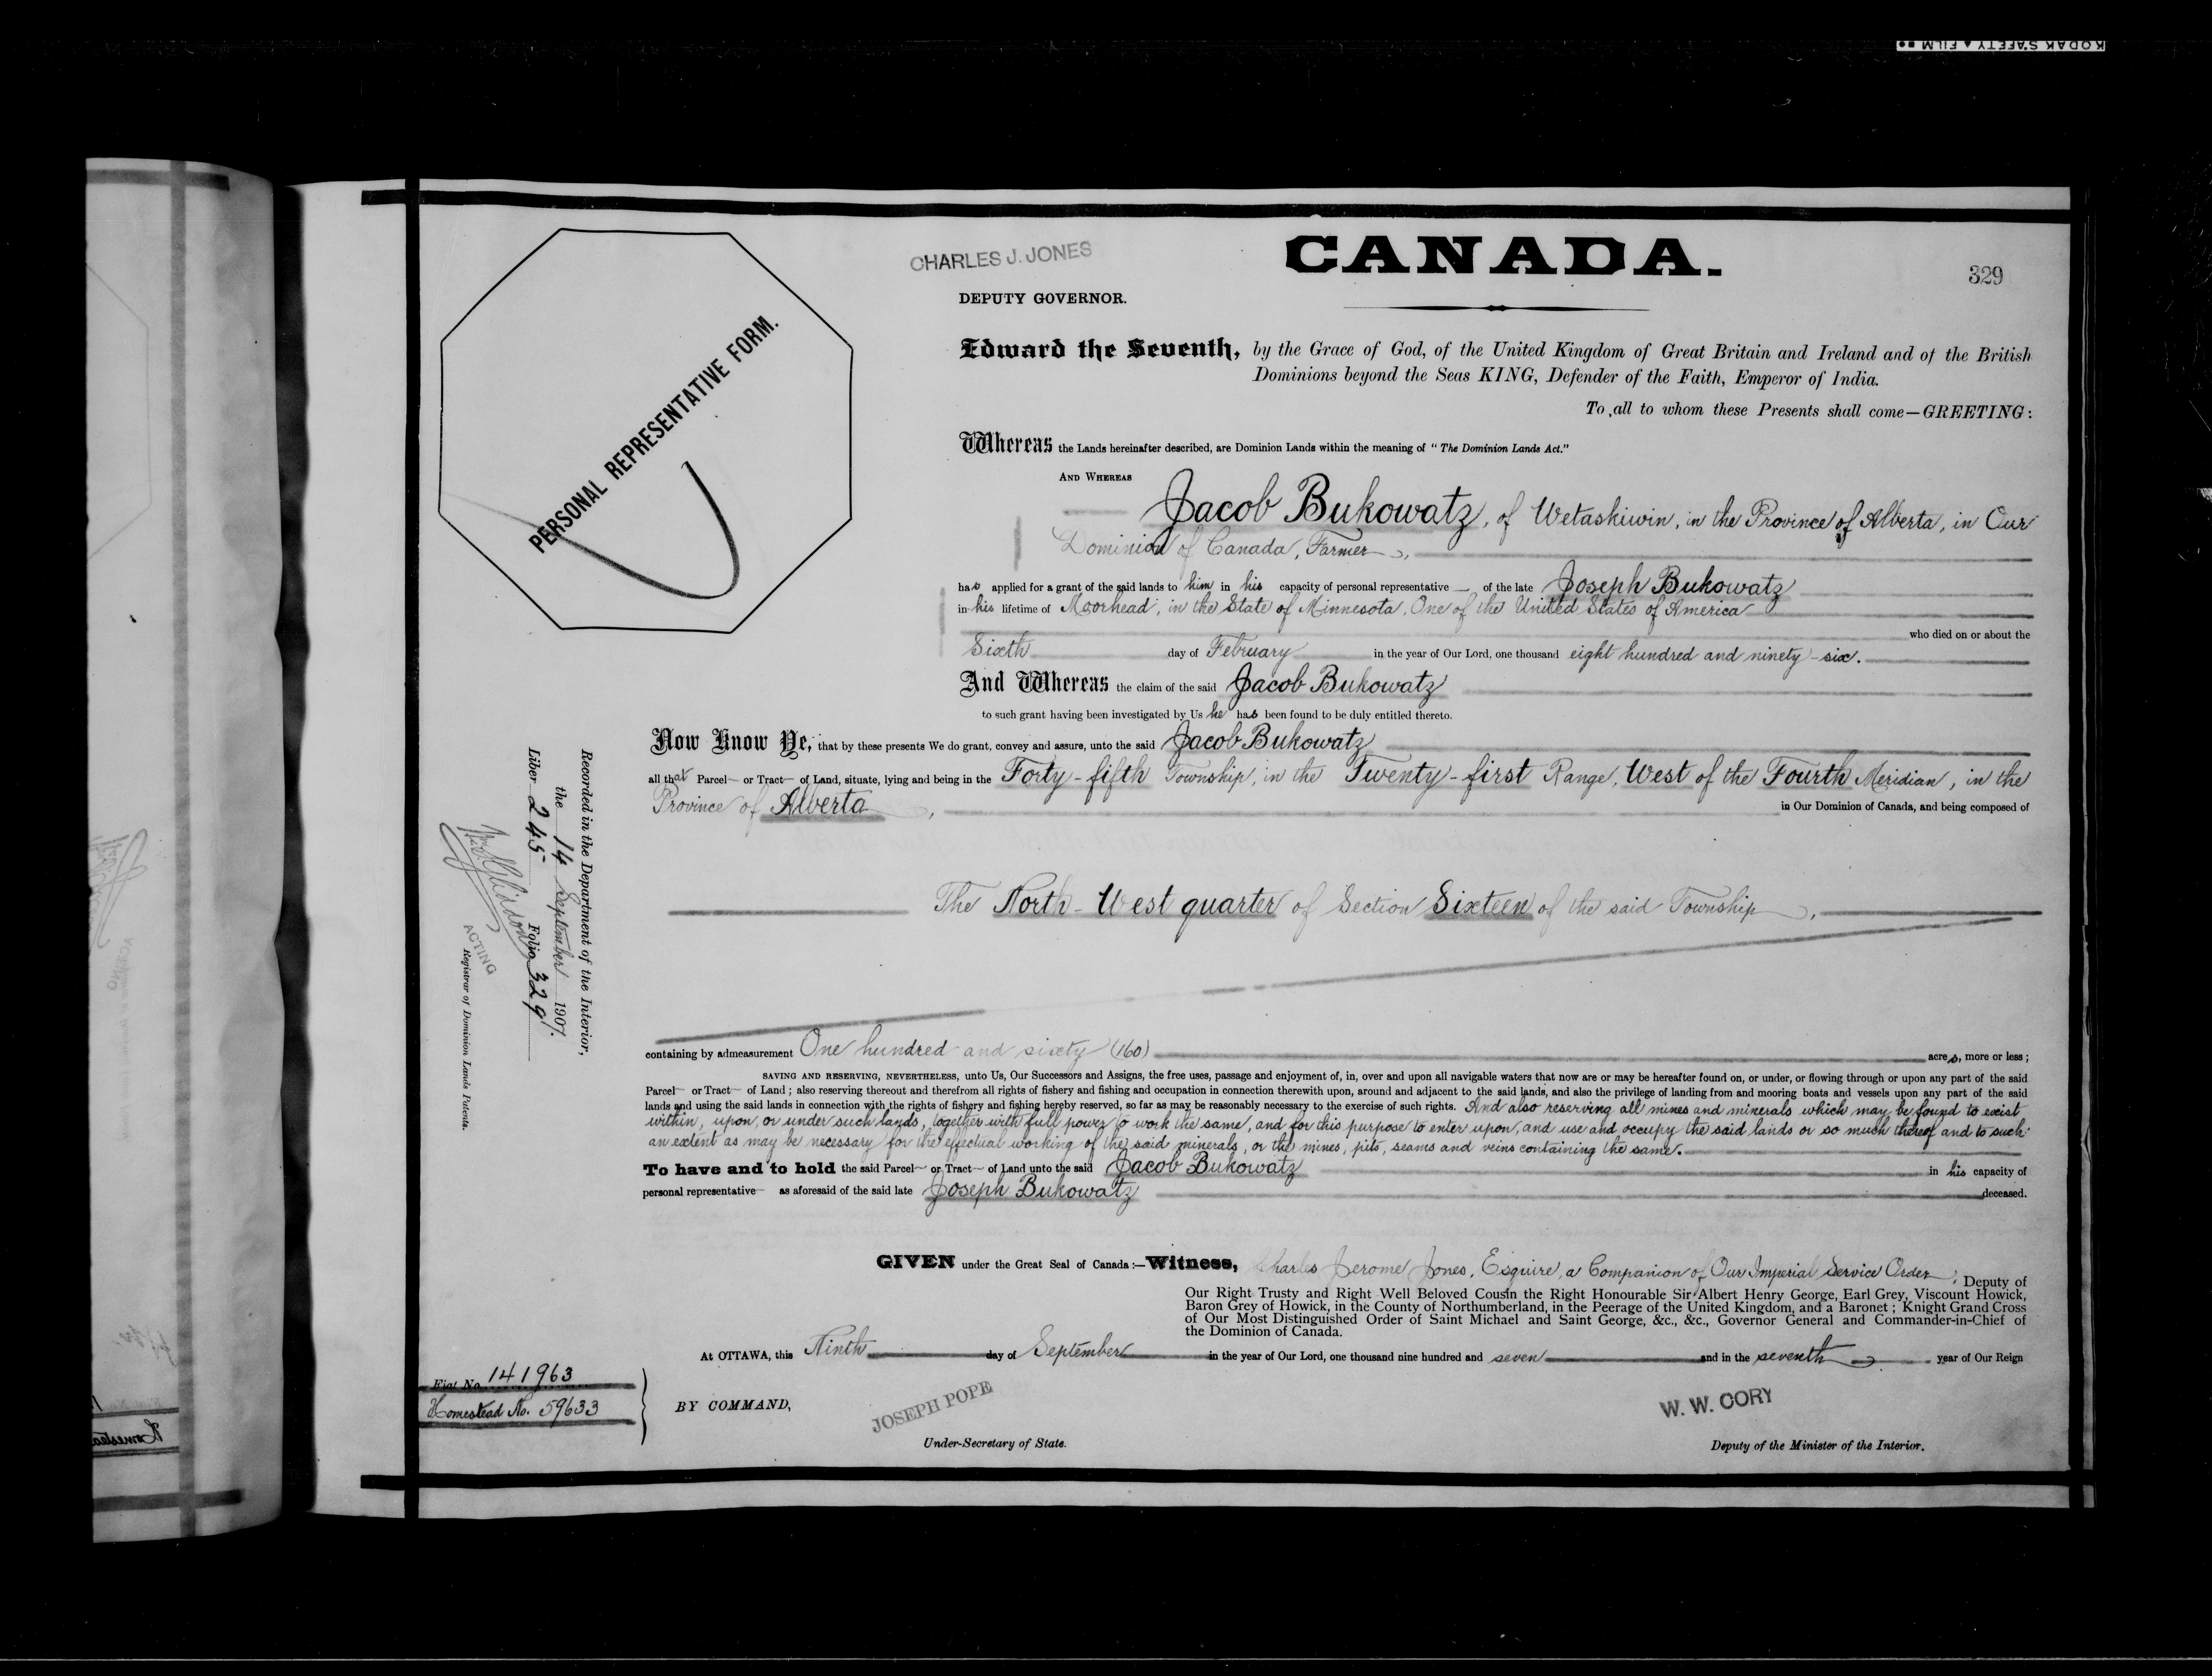 KODAK SAFETY FILM
CHARLES J. JONES
CANADA.
329
DEPUTY GOVERNOR.
PERSONAL REPRESENTATIVE FORM.
Edward the Seventh, by the Grace of God, of the United Kingdom of Great Britain and Ireland and of the British
Dominions beyond the Seas KING, Defender of the Faith, Emperor of India.
To all to whom these Presents shall come—GREETING:
Whereas the Lands hereinafter described, are Dominion Lands within the meaning of "The Dominion Lands Act."
AND WHEREAS
Jacob Bukowatz, of Wetaskiwin, in the Province of Alberta, in Our
Dominion of Canada, Farmer,
has applied for a grant of the said lands to him in his capacity of personal representative of the late Joseph Bukowatz
in his lifetime of Moorhead, in the State of Minnesota, One of the United States of America
who died on or about the
Sixth day of February in the year of Our Lord, one thousand eight hundred and ninety-six.
And Whereas the claim of the said Jacob Bukowatz
to such grant having been investigated by Us he has been found to be duly entitled thereto.
Now Know Ye, that by these presents We do grant, convey and assure, unto the said Jacob Bukowatz
all that Parcel or Tract of Land, situate, lying and being in the Forty-fifth Township, in the Twenty-first Range, West of the Fourth Meridian, in the
Province of Alberta, in Our Dominion of Canada, and being composed of
The North-West quarter of Section Sixteen of the said Township,
containing by admeasurement One hundred and sixty (160) acres, more or less;
SAVING AND RESERVING, NEVERTHELESS, unto Us, Our Successors and Assigns, the free uses, passage and enjoyment of, in, over and upon all navigable waters that now are or may be hereafter found on, or under, or flowing through or upon any part of the said
Parcel or Tract of Land; also reserving thereout and therefrom all rights of fishery and fishing and occupation in connection therewith upon, around and adjacent to the said lands, and also the privilege of landing from and mooring boats and vessels upon any part of the said
lands and using the said lands in connection with the rights of fishery and fishing hereby reserved, so far as may be reasonably necessary to the exercise of such rights. And also reserving all mines and minerals which may be found to exist
within, upon, or under such lands, together with full power to work the same, and for this purpose to enter upon, and use and occupy the said lands or so much thereof and to such
an extent as may be necessary for the effectual working of the said minerals, or the mines, pits, seams and veins containing the same.
To have and to hold the said Parcel or Tract of Land unto the said Jacob Bukowatz in his capacity of
personal representative as aforesaid of the said late Joseph Bukowatz deceased.
GIVEN under the Great Seal of Canada:—Witness, Charles Jerome Jones, Esquire, a Companion of Our Imperial Service Order, Deputy of
Our Right Trusty and Right Well Beloved Cousin the Right Honourable Sir Albert Henry George, Earl Grey, Viscount Howick,
Baron Grey of Howick, in the County of Northumberland, in the Peerage of the United Kingdom, and a Baronet; Knight Grand Cross
of Our Most Distinguished Order of Saint Michael and Saint George, &c., &c., Governor General and Commander-in-Chief of
the Dominion of Canada.
At OTTAWA, this Ninth day of September in the year of Our Lord, one thousand nine hundred and seven and in the seventh year of Our Reign
BY COMMAND,
JOSEPH POPE
Under-Secretary of State.
W. W. CORY
Deputy of the Minister of the Interior.
Recorded in the Department of the Interior,
the 14 September 1907.
Liber 245 Folio 329
ACTING
Registrar of Dominion Lands Patents.
Fiat No. 141963
Homestead No. 59633